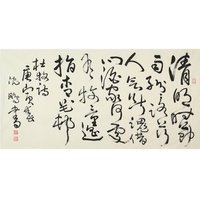 清明时节
雨纷纷路上行
人欲断魂借
问酒家何处
有牧童遥
指杏花村
杜牧诗
庚寅
沈鹏书